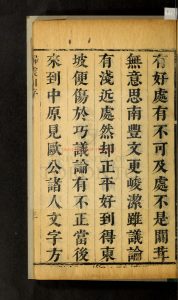 有好處有不可及處不是闒茸
無意思南豐文更峻潔雖議論
有淺近處然却正平好到得東
坡便傷於巧議論有不正當後
來到中原見歐公諸人文字方